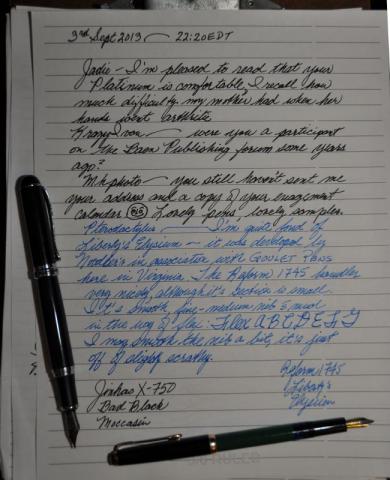 3rd Sept 2013 — 22:20 EDT
Jadie - I'm pleased to read that your
Platinum is comfortable, I recall how
much difficulty my mother had when her
hands went arthritic
KrazyIvan — were you a participant
on the Baen Publishing forum some years
ago?
Mhphoto — you still haven't sent me
your address and a copy of your engagement
calendar. Lovely pens, lovely samples.
Pterodactylus — I'm quite fond of
Liberty's Elysium — it was developed by
Noodler's in association with GOULET PENS
here in Virginia. The Reform 1745 handles
very nicely, although it's section is small.
It's smooth, fine-medium nib's much
in the way of flex: Flex A B C D E F G
I may smooth the nib a bit, it's just
off of slightly scratchy.
Jinhao X-750
Bad Black
Moccasin
Reform 1745
Liberty's
Elysium